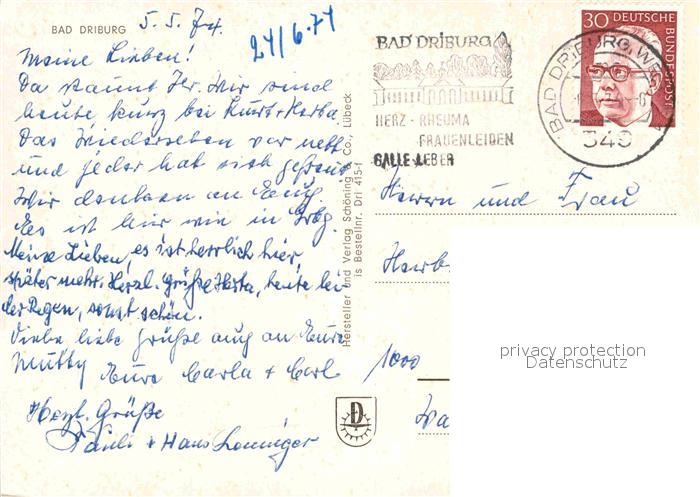 BAD DRIBURG
5.5.74.
24/6.74
Meine Lieben!
Da staunt Ihr. Wir sind
heute kurz bei Kurt + Herta.
Das Wiedersehen war nett
und jeder hat sich gefreut
Wir denken an Euch.
Es ist hier wie in
Meine Lieben, es ist herrlich hier,
später mehr. Herzl. Grüße Herta, heute
der Regen, sonst schön.
Viele liebe Grüße auch an Eure
Mutty
Eure Carla + Carl
Herzl. Grüße
+ Hans
Hersteller und Verlag Schöning & Co., Lübeck
is Bestellnr. Dri 415-f
BAD DRIBURG
HERZ - RHEUMA
FRAUENLEIDEN
GALLE - LEBER
BAD DRIBURG, WESTF
349
30 DEUTSCHE
BUNDESPOST
Herrn und Frau
Herb
1000
privacy protection
Datenschutz